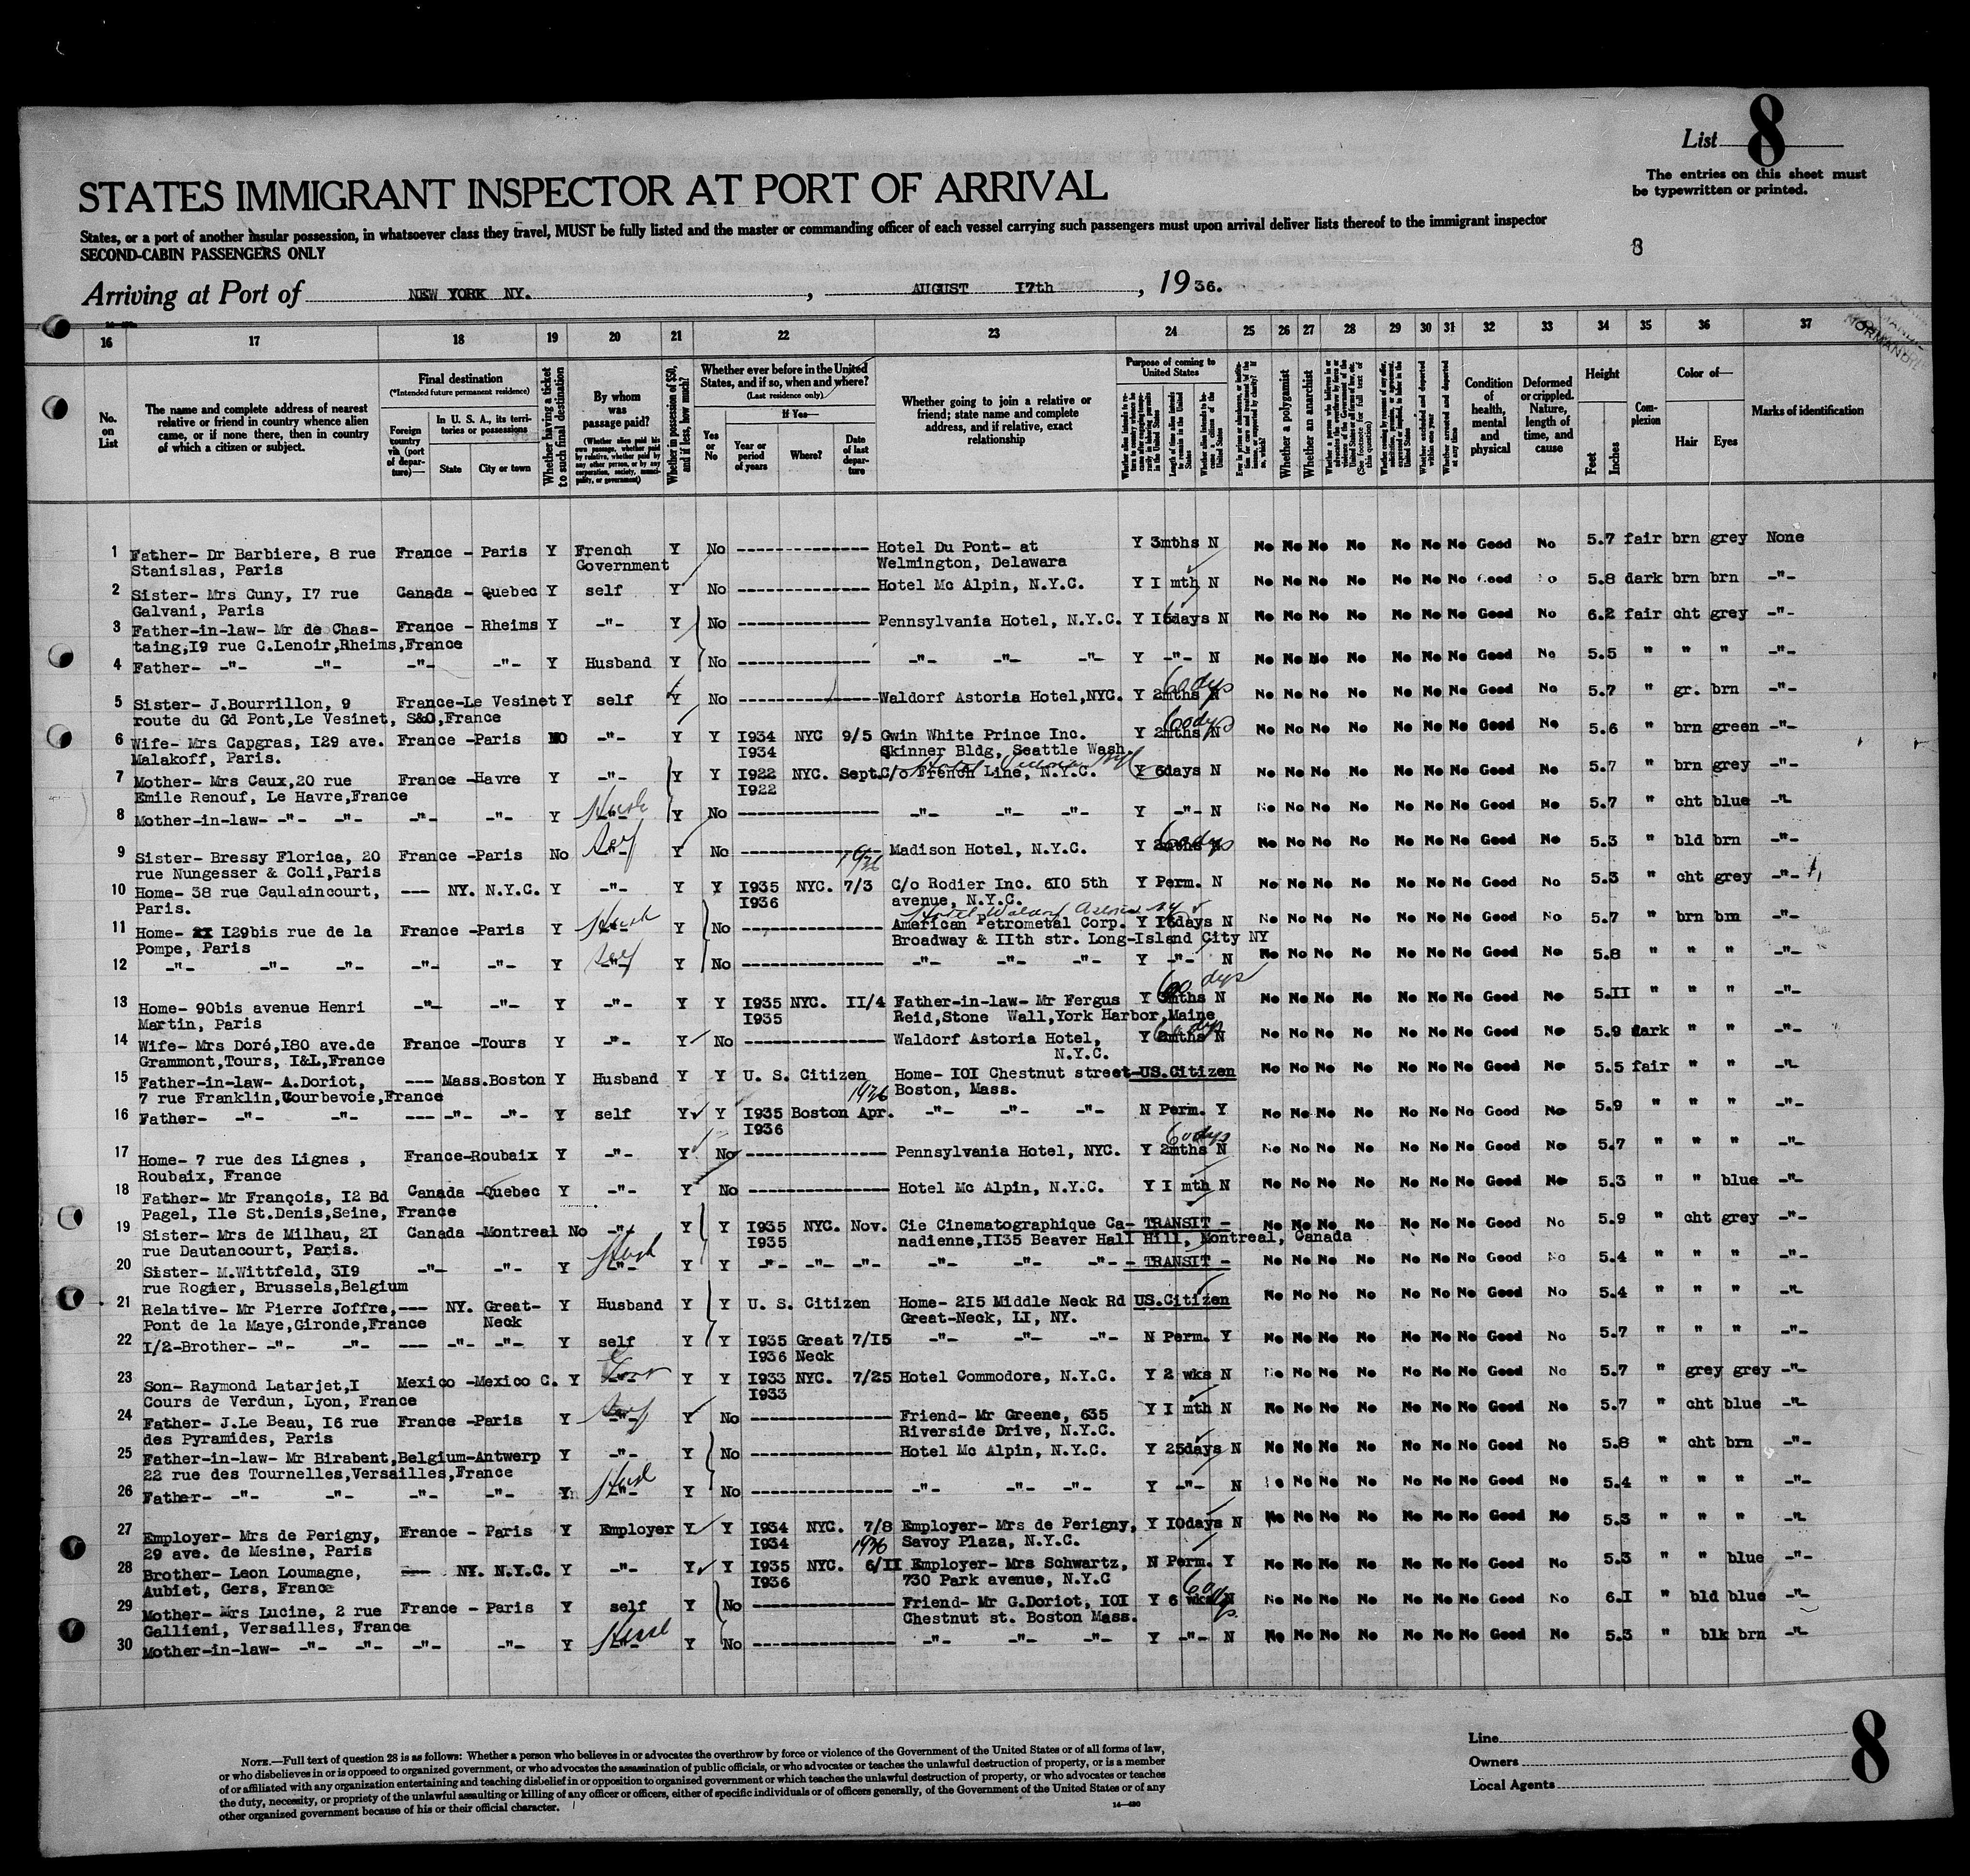 List 8
The entries on this sheet must
be typewritten or printed.
STATES IMMIGRANT INSPECTOR AT PORT OF ARRIVAL
States, or a port of another insular possession, in whatsoever class they travel, MUST be fully listed and the master or commanding officer of each vessel carrying such passengers must upon arrival deliver lists thereof to the immigrant inspector
SECOND-CABIN PASSENGERS ONLY
8
Arriving at Port of NEW YORK NY. , AUGUST 17th , 1936.
NORMANDIE
16 17 18 19 20 21 22 23 24 25 26 27 28 29 30 31 32 33 34 35 36 37
No. on List
The name and complete address of nearest relative or friend in country whence alien came, or if none there, then in country of which a citizen or subject.
Final destination
(*Intended future permanent residence)
Foreign country via (port of departure)—
In U. S. A., its territories or possessions
State
City or town
Whether having a ticket to such final destination
By whom was passage paid?
(Whether alien paid his own passage, whether paid by relative, whether paid by any other person, or by any corporation, society, municipality, or government)
Whether in possession of $50, and if less, how much?
Whether ever before in the United States, and if so, when and where?
(Last residence only.)
Yes or No
If Yes—
Year or period of years
Where?
Date of last departure
Whether going to join a relative or friend; state name and complete address, and if relative, exact relationship
Purpose of coming to United States
Whether a polygamist
Whether an anarchist
Condition of health, mental and physical
Deformed or crippled. Nature, length of time, and cause
Height
Feet
Inches
Complexion
Color of—
Hair
Eyes
Marks of identification
1 Father- Dr Barbiere, 8 rue France - Paris Y French Y No -------------- Hotel Du Pont- at Y 3mths N No No No No No No No Good No 5.7 fair brn grey None
Stanislas, Paris Government Welmington, Delawara
2 Sister- Mrs Cuny, I7 rue Canada - Quebec Y self Y No -------------- Hotel Mc Alpin, N.Y.C. Y I mth N No No No No No No No Good No 5.8 dark brn brn -"-
Galvani, Paris
3 Father-in-law- Mr de Chas- France - Rheims Y -"- Y No -------------- Pennsylvania Hotel, N.Y.C. Y I5days N No No No No No No No Good No 6.2 fair cht grey -"-
taing,I9 rue C.Lenoir,Rheims,France
4 Father- -"- -"- -"- -"- Y Husband Y No -------------- -"- -"- -"- Y -"- N No No No No No No No Good No 5.5 " " " -"-
5 Sister- J.Bourrillon, 9 France-Le Vesinet Y self Y No -------------- Waldorf Astoria Hotel,NYC. Y 2mths N 60 dys No No No No No No No Good No 5.7 " gr. brn -"-
route du Gd Pont,Le Vesinet, S&O,France
6 Wife- Mrs Capgras, I29 ave. France -Paris NO -"- Y Y I934 NYC 9/5 Gwin White Prince Inc. Y 2mths N 60 dys No No No No No No No Good No 5.6 " brn green -"-
Malakoff, Paris. I934 Skinner Bldg, Seattle Wash.
7 Mother- Mrs Caux,20 rue France -Havre Y -"- Y Y I922 NYC. Sept. C/o French Line, N.Y.C. Y 6days N No No No No No No No Good No 5.7 " brn grey -"-
Emile Renouf, Le Havre,France I922
8 Mother-in-law- -"- -"- -"- -"- Y Husb Y No -------------- -"- -"- -"- Y -"- N No No No No No No No Good No 5.7 " cht blue -"-
9 Sister- Bressy Florica, 20 France -Paris No Self Y No -------------- Madison Hotel, N.Y.C. Y 2mths N 60 dys No No No No No No No Good No 5.3 " bld brn -"-
rue Nungesser & Coli,Paris
10 Home- 38 rue Caulaincourt, --- NY. N.Y.C. Y -"- Y Y I935 NYC. 7/3 C/o Rodier Inc. 6I0 5th Y Perm. N No No No No No No No Good No 5.3 " cht grey -"-
Paris. I936 avenue, N.Y.C.
Hotel Waldorf Astoria NY
11 Home- I29bis rue de la France -Paris Y Husb Y No -------------- American Petrometal Corp. Y I5days N No No No No No No No Good No 5.7 " brn brn -"-
Pompe, Paris Broadway & IIth str. Long-Island City NY
12 -"- -"- -"- -"- -"- Y Self Y No -------------- -"- -"- -"- Y -"- N No No No No No No No Good No 5.8 " " " -"-
13 Home- 90bis avenue Henri -"- -"- Y -"- Y Y I935 NYC. II/4 Father-in-law- Mr Fergus Y 3mths N 60 dys No No No No No No No Good No 5.II " " " -"-
Martin, Paris I935 Reid,Stone Wall,York Harbor,Maine
14 Wife- Mrs Doré,I80 ave.de France -Tours Y -"- Y No -------------- Waldorf Astoria Hotel, Y 2mths N 60 dys No No No No No No No Good No 5.9 dark " " -"-
Grammont,Tours, I&L,France N.Y.C.
15 Father-in-law- A.Doriot, --- Mass.Boston Y Husband Y Y U. S. Citizen Home- IOI Chestnut street-US.Citizen No No No No No No No Good No 5.5 fair " " -"-
7 rue Franklin,Courbevoie,France 1936 Boston, Mass.
16 Father- -"- -"- --- -"- -"- Y self Y Y I935 Boston Apr. -"- -"- -"- N Perm. Y No No No No No No No Good No 5.9 " " " -"-
I936
17 Home- 7 rue des Lignes , France-Roubaix Y -"- Y No -------------- Pennsylvania Hotel, NYC. Y 2mths N 60 dys No No No No No No No Good No 5.7 " " " -"-
Roubaix, France
18 Father- Mr François, I2 Bd Canada -Quebec Y -"- Y No -------------- Hotel Mc Alpin, N.Y.C. Y I mth N No No No No No No No Good No 5.3 " " blue -"-
Pagel, Ile St.Denis,Seine, France
19 Sister- Mrs de Milhau, 2I Canada -Montreal No -"- Y Y I935 NYC. Nov. Cie Cinematographique Ca- TRANSIT - No No No No No No No Good No 5.9 " cht grey -"-
rue Dautancourt, Paris. I935 nadienne,II35 Beaver Hall Hill, Montreal, Canada
20 Sister- M.Wittfeld, 3I9 -"- -"- Y Husb Y Y -"- -"- -"- -"- -"- -"- - TRANSIT - No No No No No No No Good No 5.4 " " " -"-
rue Rogier, Brussels,Belgium
21 Relative- Mr Pierre Joffre, --- NY. Great- Y Husband Y Y U. S. Citizen Home- 2I5 Middle Neck Rd US.Citizen No No No No No No No Good No 5.4 " " " -"-
Pont de la Maye,Gironde,France Neck Great-Neck, LI, NY.
22 I/2-Brother- -"- -"- --- -"- -"- Y self Y Y I935 Great 7/I5 -"- -"- -"- N Perm. Y No No No No No No No Good No 5.7 " " " -"-
I936 Neck
23 Son- Raymond Latarjet,I Mexico -Mexico C. Y Y Y I933 NYC. 7/25 Hotel Commodore, N.Y.C. Y 2 wks N No No No No No No No Good No 5.7 " grey grey -"-
Cours de Verdun, Lyon, France I933
24 Father- J.Le Beau, I6 rue France -Paris Y Self Y No -------------- Friend- Mr Greene, 635 Y I mth N No No No No No No No Good No 5.7 " cht blue -"-
des Pyramides, Paris Riverside Drive, N.Y.C.
25 Father-in-law- Mr Birabent,Belgium-Antwerp Y -"- Y No -------------- Hotel Mc Alpin, N.Y.C. Y 25days N No No No No No No No Good No 5.8 " cht brn -"-
22 rue des Tournelles,Versailles,France
26 Father- -"- -"- -"- -"- Y Husb Y No -------------- -"- -"- -"- Y -"- N No No No No No No No Good No 5.4 " " " -"-
27 Employer- Mrs de Perigny, France - Paris Y Employer Y Y I934 NYC. 7/8 Employer- Mrs de Perigny, Y I0days N No No No No No No No Good No 5.3 " " " -"-
29 ave. de Mesine, Paris I934 1936 Savoy Plaza, N.Y.C.
28 Brother- Leon Loumagne, --- NY. N.Y.C. Y -"- Y Y I935 NYC. 6/II Employer- Mrs Schwartz, N Perm. Y No No No No No No No Good No 5.3 " " blue -"-
Aubiet, Gers, France I936 730 Park avenue, N.Y.C
29 Mother- Mrs Lucine, 2 rue France - Paris Y self Y No -------------- Friend- Mr G.Doriot, IOI Y 6 wks N 60 dys. No No No No No No No Good No 6.I " bld blue -"-
Gallieni, Versailles, France Chestnut st. Boston Mass.
30 Mother-in-law- -"- -"- -"- -"- Y Husb Y No -------------- -"- -"- -"- Y -"- N No No No No No No No Good No 5.3 " blk brn -"-
NOTE.—Full text of question 28 is as follows: Whether a person who believes in or advocates the overthrow by force or violence of the Government of the United States or of all forms of law,
or who disbelieves in or is opposed to organized government, or who advocates the assassination of public officials, or who advocates or teaches the unlawful destruction of property, or is a member
of or affiliated with any organization entertaining and teaching disbelief in or opposition to organized government or which teaches the unlawful destruction of property, or who advocates or teaches
the duty, necessity, or propriety of the unlawful assaulting or killing of any officer or officers, either of specific individuals or of officers generally, of the Government of the United States or of any
other organized government because of his or their official character.
14—480
Line
Owners
Local Agents
8